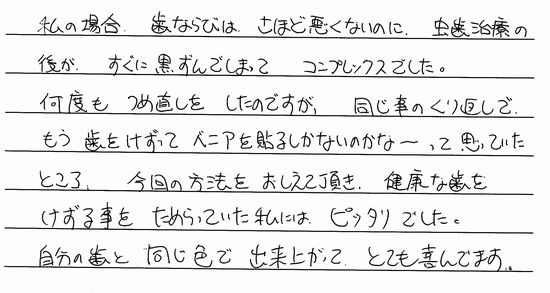 私の場合、歯ならびは、さほど悪くないのに、虫歯治療の
後が、すぐに黒ずんでしまって コンプレックスでした。
何度も つめ直しを したのですが、 同じ事のくり返しで、
もう歯をけずって ベニアを貼るしかないのかな〜って思っていた
ところ、 今回の方法を おしえて頂き、 健康な歯を
けずる事を ためらっていた私には、ピッタリでした。
自分の歯と 同じ色で 出来上がって、とても喜んでます。